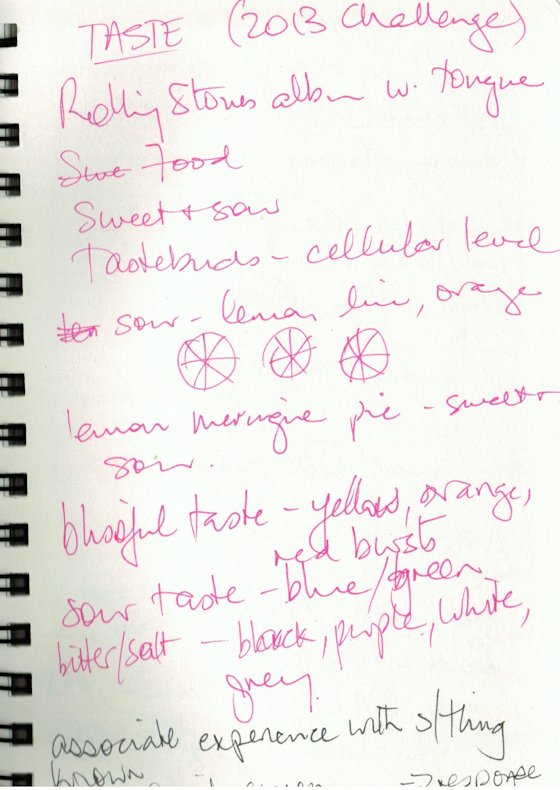 TASTE (2013 Challenge)
Rolling Stones album w. tongue
Food
Sweet + sour
Tastebuds - cellular level
sour - lemon lime, orange
lemon meringue pie - sweet +
sour.
blissful taste - yellow, orange,
red bursts
sour taste - blue/green
bitter/salt - black, purple, white,
grey.
associate experience with s/thing
known
response